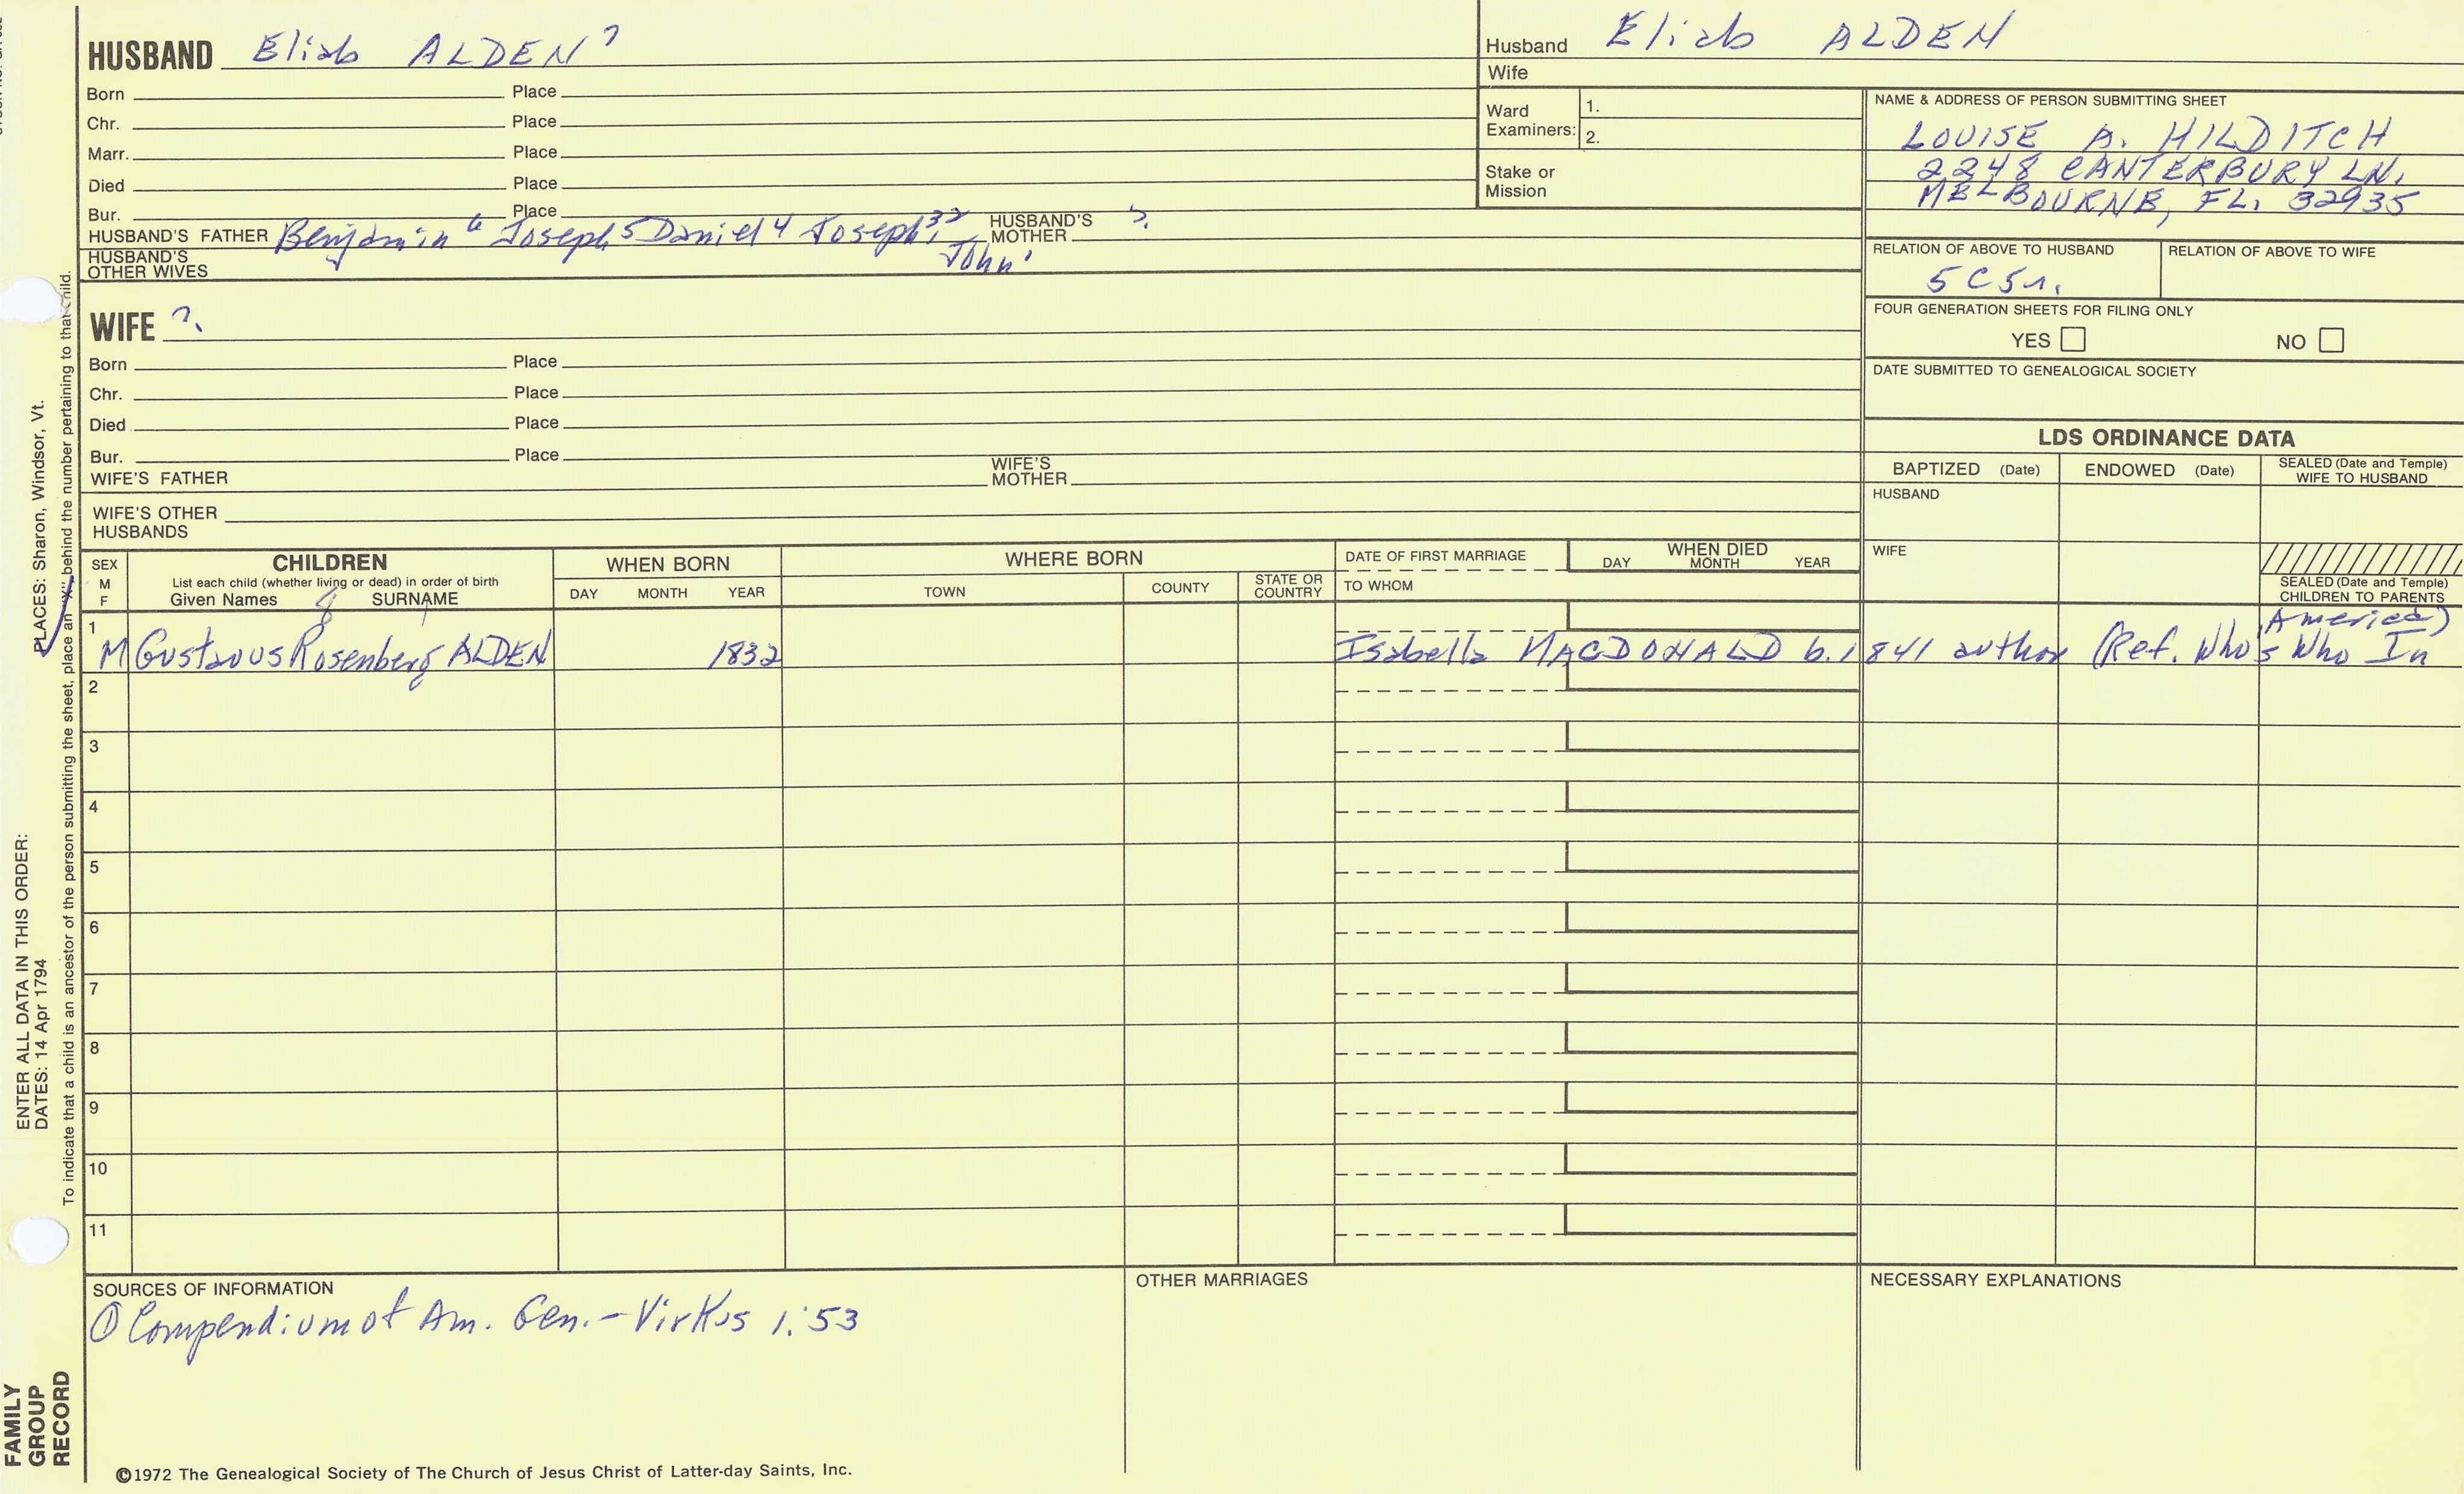 HUSBAND Eliab ALDEN 7
Born Place
Chr. Place
Marr. Place
Died Place
Bur. Place
HUSBAND'S FATHER Benjamin 6 Joseph 5 Daniel 4 Joseph 3, 2 John 1 HUSBAND'S MOTHER ?
HUSBAND'S OTHER WIVES
Husband Eliab ALDEN
Wife
Ward Examiners: 1.
2.
Stake or Mission
NAME & ADDRESS OF PERSON SUBMITTING SHEET
LOUISE A. HILDITCH
2248 CANTERBURY LN.
MELBOURNE, FL. 32935
RELATION OF ABOVE TO HUSBAND RELATION OF ABOVE TO WIFE
5C5r.
FOUR GENERATION SHEETS FOR FILING ONLY
YES NO
DATE SUBMITTED TO GENEALOGICAL SOCIETY
WIFE ?
Born Place
Chr. Place
Died Place
Bur. Place
WIFE'S FATHER WIFE'S MOTHER
WIFE'S OTHER HUSBANDS
LDS ORDINANCE DATA
BAPTIZED (Date) ENDOWED (Date) SEALED (Date and Temple) WIFE TO HUSBAND
HUSBAND
WIFE
SEALED (Date and Temple) CHILDREN TO PARENTS
SEX M F
CHILDREN
List each child (whether living or dead) in order of birth
Given Names SURNAME
WHEN BORN
DAY MONTH YEAR
WHERE BORN
TOWN COUNTY STATE OR COUNTRY
DATE OF FIRST MARRIAGE
TO WHOM
WHEN DIED
DAY MONTH YEAR
1 M Gustavus Rosenberg 8 ALDEN 1832 Isabella MACDONALD b. 1841 author (Ref. Who's Who In America)
2
3
4
5
6
7
8
9
10
11
SOURCES OF INFORMATION
① Compendium of Am. Gen. - Virkus 1:53
OTHER MARRIAGES
NECESSARY EXPLANATIONS
©1972 The Genealogical Society of The Church of Jesus Christ of Latter-day Saints, Inc.
FAMILY GROUP RECORD
ENTER ALL DATA IN THIS ORDER:
DATES: 14 Apr 1794 PLACES: Sharon, Windsor, Vt.
To indicate that a child is an ancestor of the person submitting the sheet, place an "X" behind the number pertaining to that child.